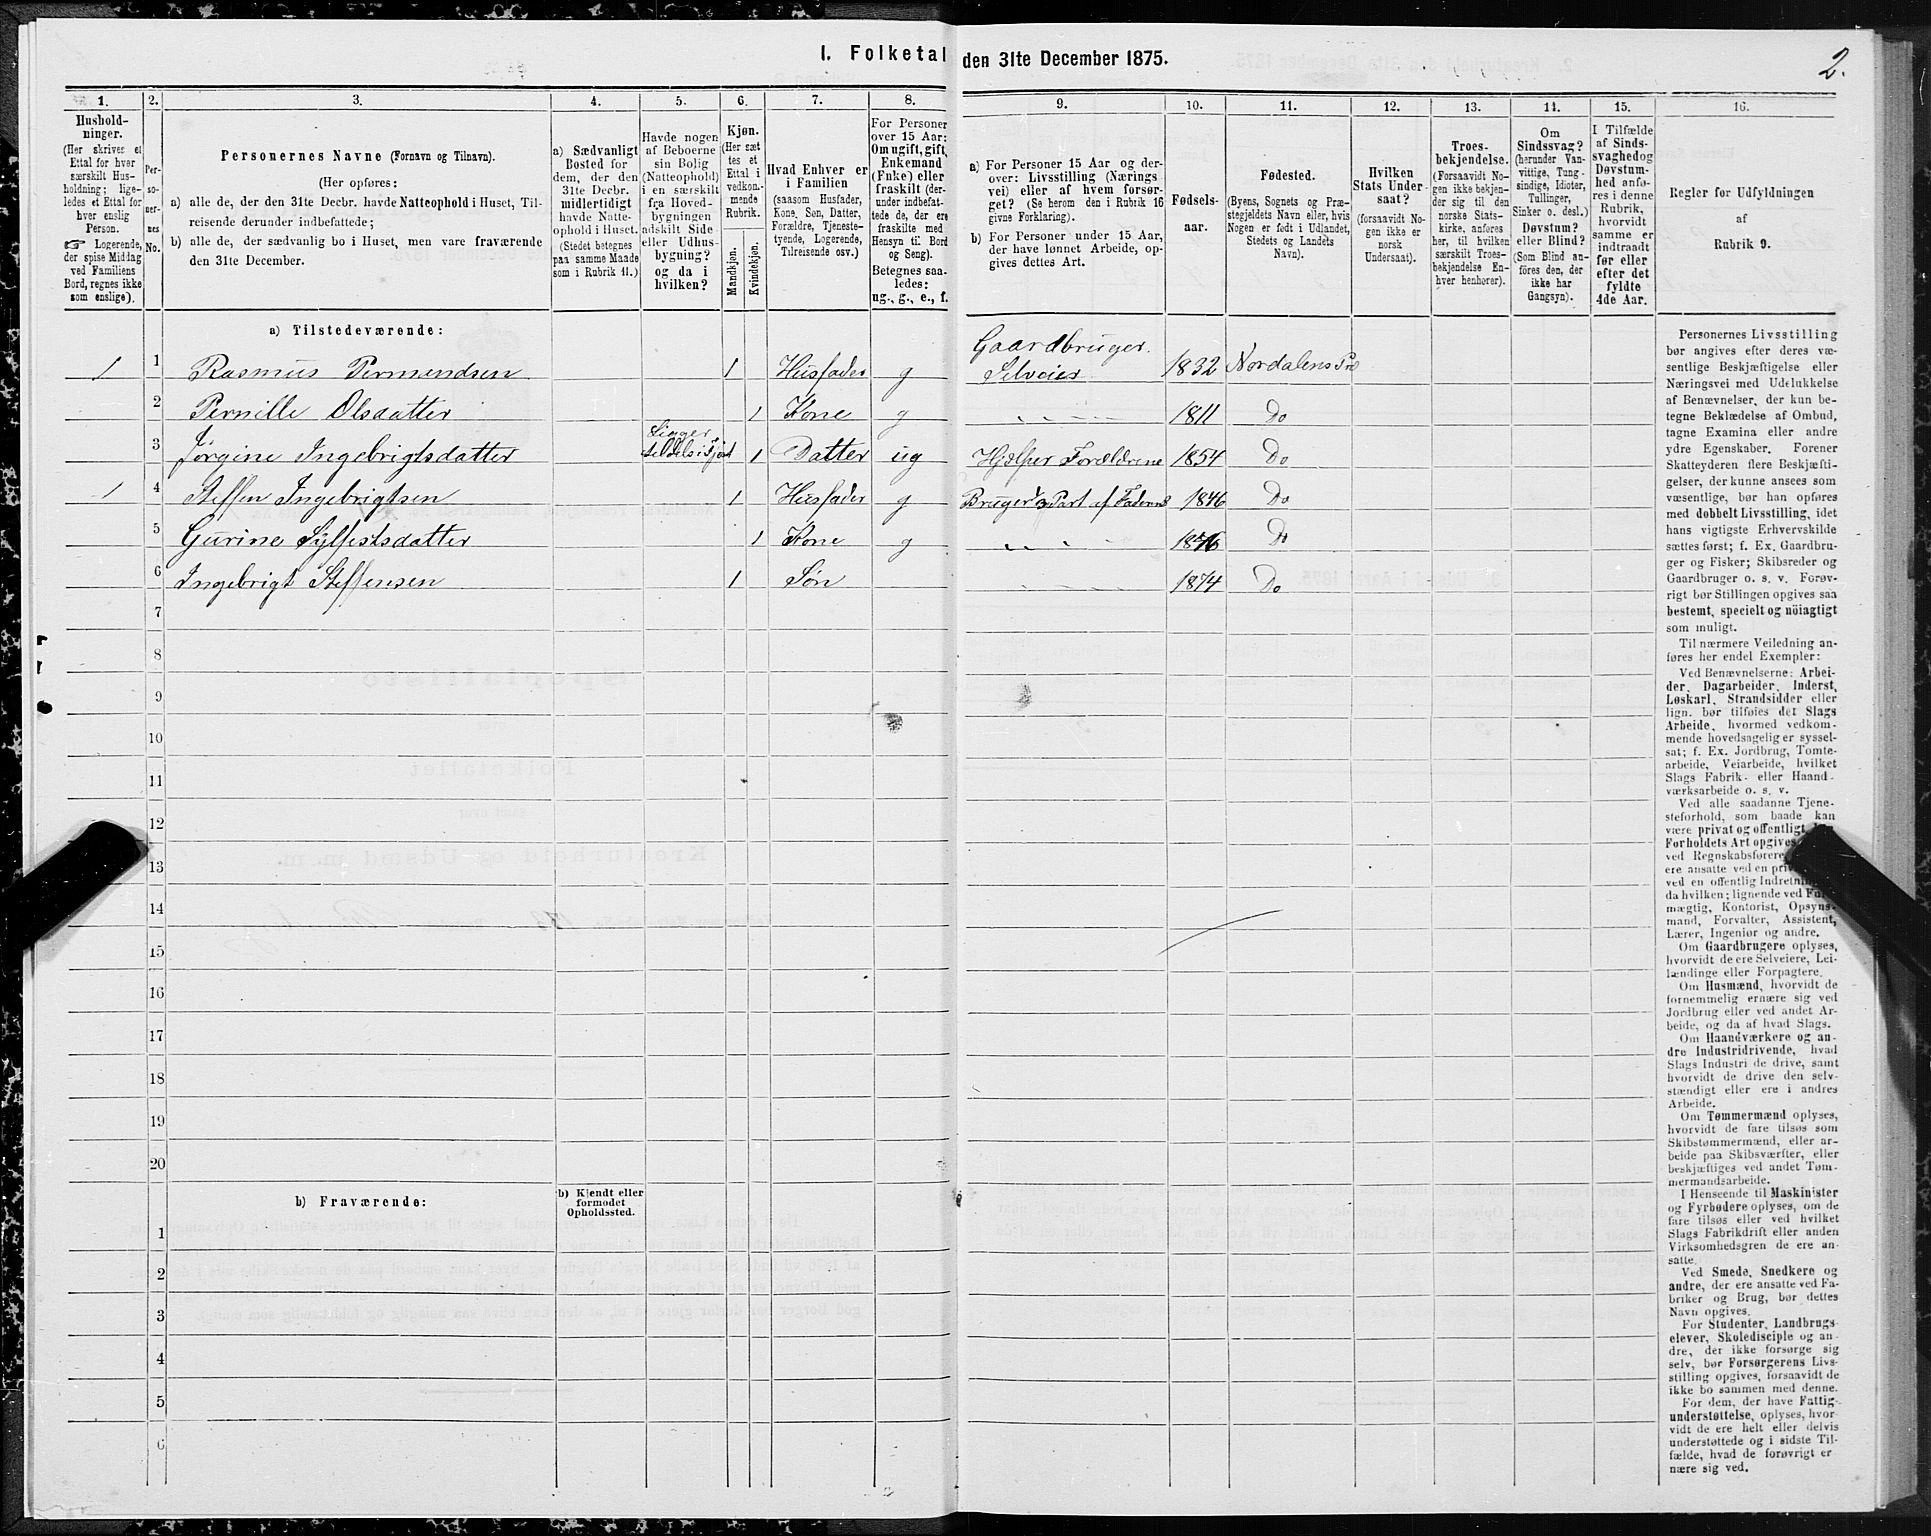 I. Folketal den 31te December 1875.
2.
1.
Hushold-
ninger.
(Her skrives et
Ettal for hver
særskilt Hus-
holdning; lige-
ledes et Ettal for
hver enslig
Person.
☞ Logerende,
der spise Middag
ved Familiens
Bord, regnes ikke
som enslige).
2.
Per-
so-
ner-
nes
No.
3.
Personernes Navne (Fornavn og Tilnavn).
(Her opføres:
a) alle de, der den 31te Decbr. havde Natteophold i Huset, Til-
reisende derunder indbefattede;
b) alle de, der sædvanlig bo i Huset, men vare fraværende
den 31te December.
4.
a) Sædvanligt
Bosted for
dem, der den
31te Decbr.
midlertidigt
havde Natte-
ophold i Huset.
(Stedet betegnes
paa samme Maade
som i Rubrik 11.)
5.
Havde nogen
af Beboerne
sin Bolig
(Natteophold)
i en særskilt
fra Hoved-
bygningen
adskilt Side-
eller Udhus-
bygning?
og da i
hvilken?
6.
Kjøn.
(Her sæt
tes et
Ettal i
vedkom-
mende
Rubrik.
Mandkjøn.
Kvindekjøn.
7.
Hvad Enhver er
i Familien
(saasom Husfader,
Kone, Søn, Datter,
Forældre, Tjeneste-
tyende, Logerende,
Tilreisende osv.)
8.
For Personer
over 15 Aar:
Om ugift, gift,
Enkemand
(Enke) eller
fraskilt (der-
under indbefat-
tede de, der ere
fraskilte med
Hensyn til Bord
og Seng).
Betegnes saa-
ledes:
ug., g., e., f.
9.
a) For Personer 15 Aar og der-
over: Livsstilling (Nærings
vei) eller af hvem forsør-
get? (Se herom den i Rubrik 16
givne Forklaring).
b) For Personer under 15 Aar,
der have lønnet Arbeide, op-
gives dettes Art.
10.
Fødsels-
aar.
11.
Fødested.
(Byens, Sognets og Præ-
stegjeldets Navn eller, hvis
Nogen er født i Udlandet,
Stedets og Landets
Navn).
12.
Hvilken
Stats Under-
saat?
(forsaavidt No-
gen ikke er
norsk
Undersaat).
13.
Troes-
bekjendelse.
(Forsaavidt No-
gen ikke bekjen-
der sig til den
norske Stats-
kirke, anføres
her, til hvilken
særskilt Troes-
bekjendelse En-
hver henhører).
14.
Om
Sindssvag?
(herunder Van-
vittige, Tung-
sindige, Idioter,
Tullinger,
Sinker o. desl.)
Døvstum?
eller Blind?
(Som Blind an-
føres den, der
ikke har
Gangsyn).
15.
I Tilfælde
af Sinds-
svaghed og
Døvstum-
hed anfø-
res i denne
Rubrik,
hvorvidt
samme er
indtraadt
før eller
efter det
fyldte
4de Aar.
16.
Regler for Udfyldningen
af
Rubrik 9.
a) Tilstedeværende:
1 1 Rasmus Permandsen 1 Husfader g Gaardbruger. Selveier 1832 Nordalens Pr
2 Pernille Olsdatter 1 Kone g 1811 Do
3 Jørgine Ingebrigtsdatter Ligger 1 Datter ug Hjelper Forældrene 1854 Do
1 4 Steffen Ingebrigtsen 1 Husfader g Bruger Part af Faderens 1846 Do
5 Gurine Sylfestsdatter 1 Kone g Do
6 Ingebrigt Steffensen 1 Søn 1874 Do
7
8
9
10
11
12
13
14
15
16
17
18
19
20
b) Fraværende:
b) Kjendt eller
formodet
Opholdssted.
1
2
3
4
5
6
Personernes Livsstilling
bør angives efter deres væ-
sentlige Beskjæftigelse eller
Næringsvei med Udelukkelse
af Benævnelser, der kun be-
tegne Beklædelse af Ombud,
tagne Examina eller andre
ydre Egenskaber. Forener
Skatteyderen flere Beskjæfti-
gelser, der kunne ansees som
væsentlige, bør han opføres
med dobbelt Livsstilling, idet
hans vigtigste Erhvervskilde
sættes først; f. Ex. Gaardbru-
ger og Fisker; Skibsreder og
Gaardbruger o. s. v. Forøv-
rigt bør Stillingen opgives saa
bestemt, specielt og nöiagtigt
som muligt.
Til nærmere Veiledning an-
føres her endel Exempler:
Ved Benævnelserne: Arbei-
der, Dagarbeider, Inderst,
Løskarl, Strandsidder eller
lign. bør tilføies det Slags
Arbeide, hvormed vedkom-
mende hovedsagelig er syssel-
sat; f. Ex. Jordbrug, Tomte-
arbeide, Veiarbeide, hvilket
Slags Fabrik- eller Haand-
værksarbeide o. s. v.
Ved alle saadanne Tjene-
steforhold, som baade kan
være privat og offentligt,
Forholdets Art opgives
ved Regnskabsførere
ere ansatte ved en
ved en offentlig Indretning
da hvilken; lignende ved
mægtig, Kontorist, Opsyns-
mand, Forvalter, Assistent,
Lærer, Ingeniør og andre.
Om Gaardbrugere oplyses,
hvorvidt de ere Selveiere, Lei-
lændinge eller Forpagtere.
Om Husmænd, hvorvidt de
fornemmelig ernære sig ved
Jordbrug eller ved andet Ar-
beide, og da af hvad Slags.
Om Haandværkere og an-
dre Industridrivende, hvad
Slags Industri de drive, samt
hvorvidt de drive den selv-
stændigt eller ere i andres
Arbeide.
Om Tømmermænd oplyses,
hvorvidt de fare tilsøs som
Skibstømmermænd, eller ar-
beide paa Skibsværfter, eller
beskjæftiges ved andet Tøm-
mermandsarbeide.
I Henseende til Maskinister
og Fyrbødere oplyses, om de
fare tilsøs eller ved hvilket
Slags Fabrikdrift eller anden
Virksomhedsgren de ere an-
satte.
Ved Smede, Snedkere og
andre, der ere ansatte ved Fa-
briker og Brug, bør dettes
Navn opgives.
For Studenter, Landbrugs-
elever, Skoledisciple og an-
dre, der ikke forsørge sig
selv, bør Forsørgerens Livs-
stilling opgives, forsaavidt de
ikke bo sammen med denne.
For dem, der have Fattig-
understøttelse, oplyses, hvor-
vidt de ere helt eller delvis
understøttede og i sidste Til-
fælde, hvad de forøvrigt er
nære sig ved.